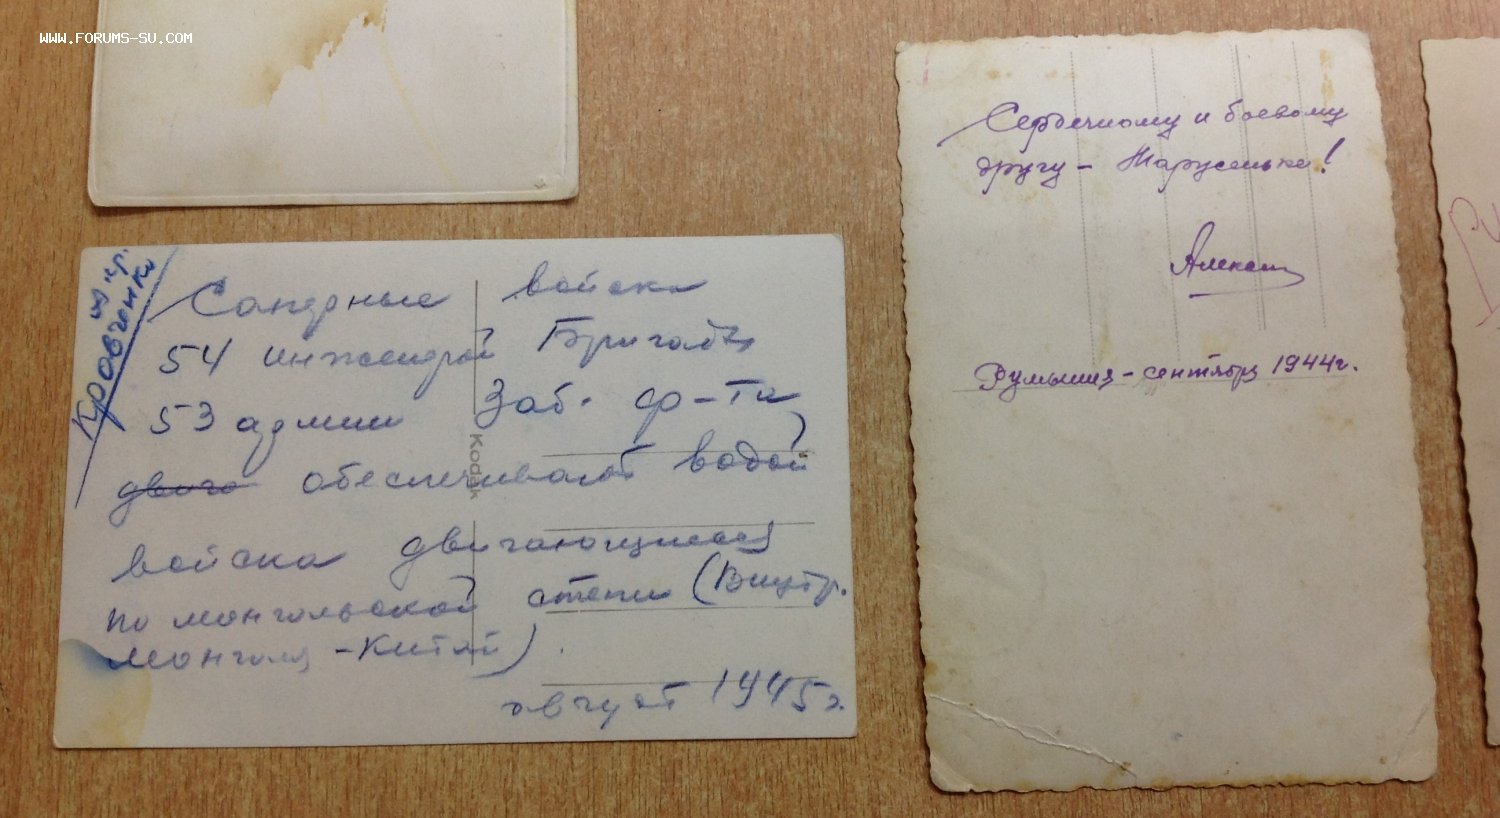 WWW.FORUMS-SU.COM
Кравченко
Саперные войска
54 инженерной Бригады
53 армии Заб. фр-та
двига обеспечивают водой
Kodak
войска двигающиеся
по монгольской степи (Внутр.
Монголия - Китай).
август 1945г.
Сердечному и боевому
другу - Марусеньке!
Алексей
Румыния - сентябрь 1944г.